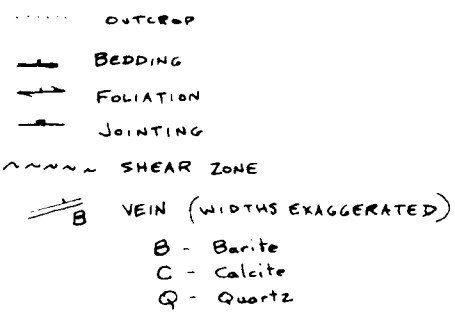 OUTCROP
BEDDING
FOLIATION
JOINTING
SHEAR ZONE
B VEIN (WIDTHS EXAGGERATED)
B - Barite
C - Calcite
Q - Quartz